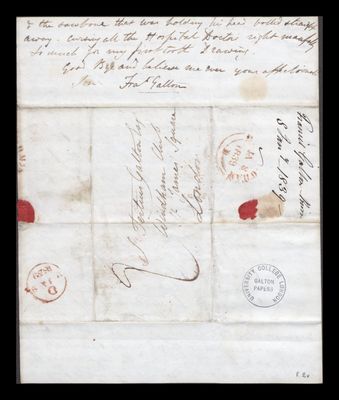 & the sawbone that was holding his head bolted straight
away - cursing all the Hospital Doctor right manfully
So much for my first tooth drawing.
Good Bye and believe me ever your affectionate
Son Fra.s Galton
S. Tertius Galton Esq
Windham Club
St James' Square
London
Francis Galton
8 Jan.y 1839
JA 8
1839
D
JA 8
1839
UNIVERSITY COLLEGE LONDON
GALTON
PAPERS